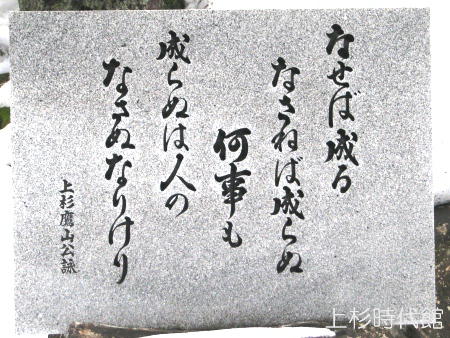 なせば成る
なさねば成らぬ
何事も
成らぬは人の
なさぬなりけり
上杉鷹山公詠
上杉時代館